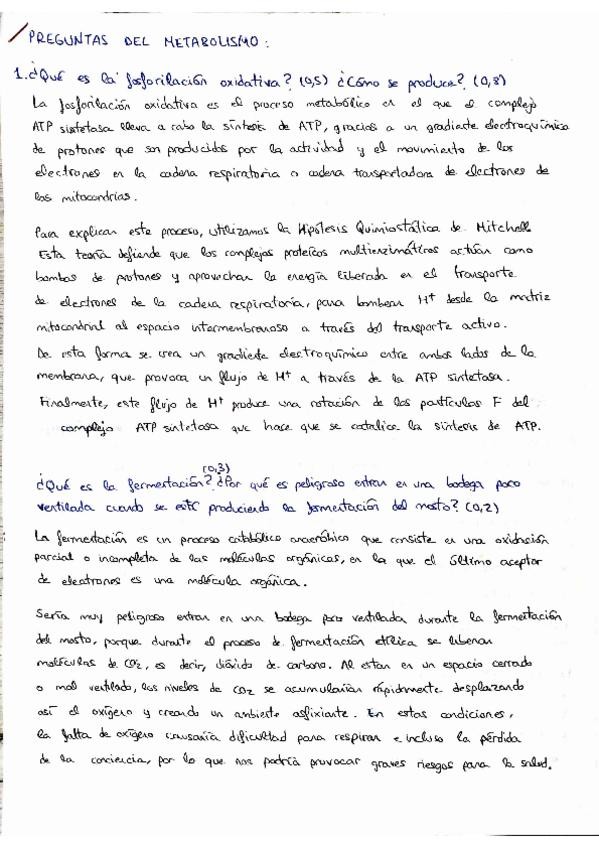 PREGUNTAS DEL METABOLISMO:
1. ¿Qué es la fosforilación oxidativa? (0,5) ¿Cómo se produce? (0,8)
La fosforilación oxidativa es el proceso metabólico en el que el complejo
ATP sintetasa lleva a cabo la síntesis de ATP, gracias a un gradiente electroquímico
de protones que son producidos por la actividad y el movimiento de los
electrones en la cadena respiratoria o cadena transportadora de electrones de
las mitocondrias.
Para explicar este proceso, utilizamos la Hipótesis Quimiostática de Mitchell
Esta teoría defiende que los complejos proteicos multienzimáticos actúan como
bombas de protones y aprovechan la energía liberada en el transporte
de electrones de la cadena respiratoria, para bombear H+ desde la matriz
mitocondrial al espacio intermembranoso a través del transporte activo.
De esta forma se crea un gradiente electroquímico entre ambos lados de la
membrana, que provoca un flujo de H+ a través de la ATP sintetasa.
Finalmente, este flujo de H+ produce una rotación de las partículas F del
complejo ATP sintetasa que hace que se catalice la síntesis de ATP.
(0,3)
¿Qué es la fermentación? ¿Por qué es peligroso entrar en una bodega poco
ventilada cuando se está produciendo la fermentación del mosto? (0,2)
La fermentación es un proceso catabólico anaeróbico que consiste en una oxidación
parcial o incompleta de las moléculas orgánicas, en la que el último aceptor
de electrones es una molécula orgánica.
Sería muy peligroso entrar en una bodega poco ventilada durante la fermentación
del mosto, porque durante el proceso de fermentación etílica se liberan
moléculas de CO2, es decir, dióxido de carbono. Al estar en un espacio cerrado
o mal ventilado, los niveles de CO2 se acumularían rápidamente desplazando
así el oxígeno y creando un ambiente asfixiante. En estas condiciones,
la falta de oxígeno causaría dificultad para respirar e incluso la pérdida
de la conciencia, por lo que nos podría provocar graves riesgos para la salud.